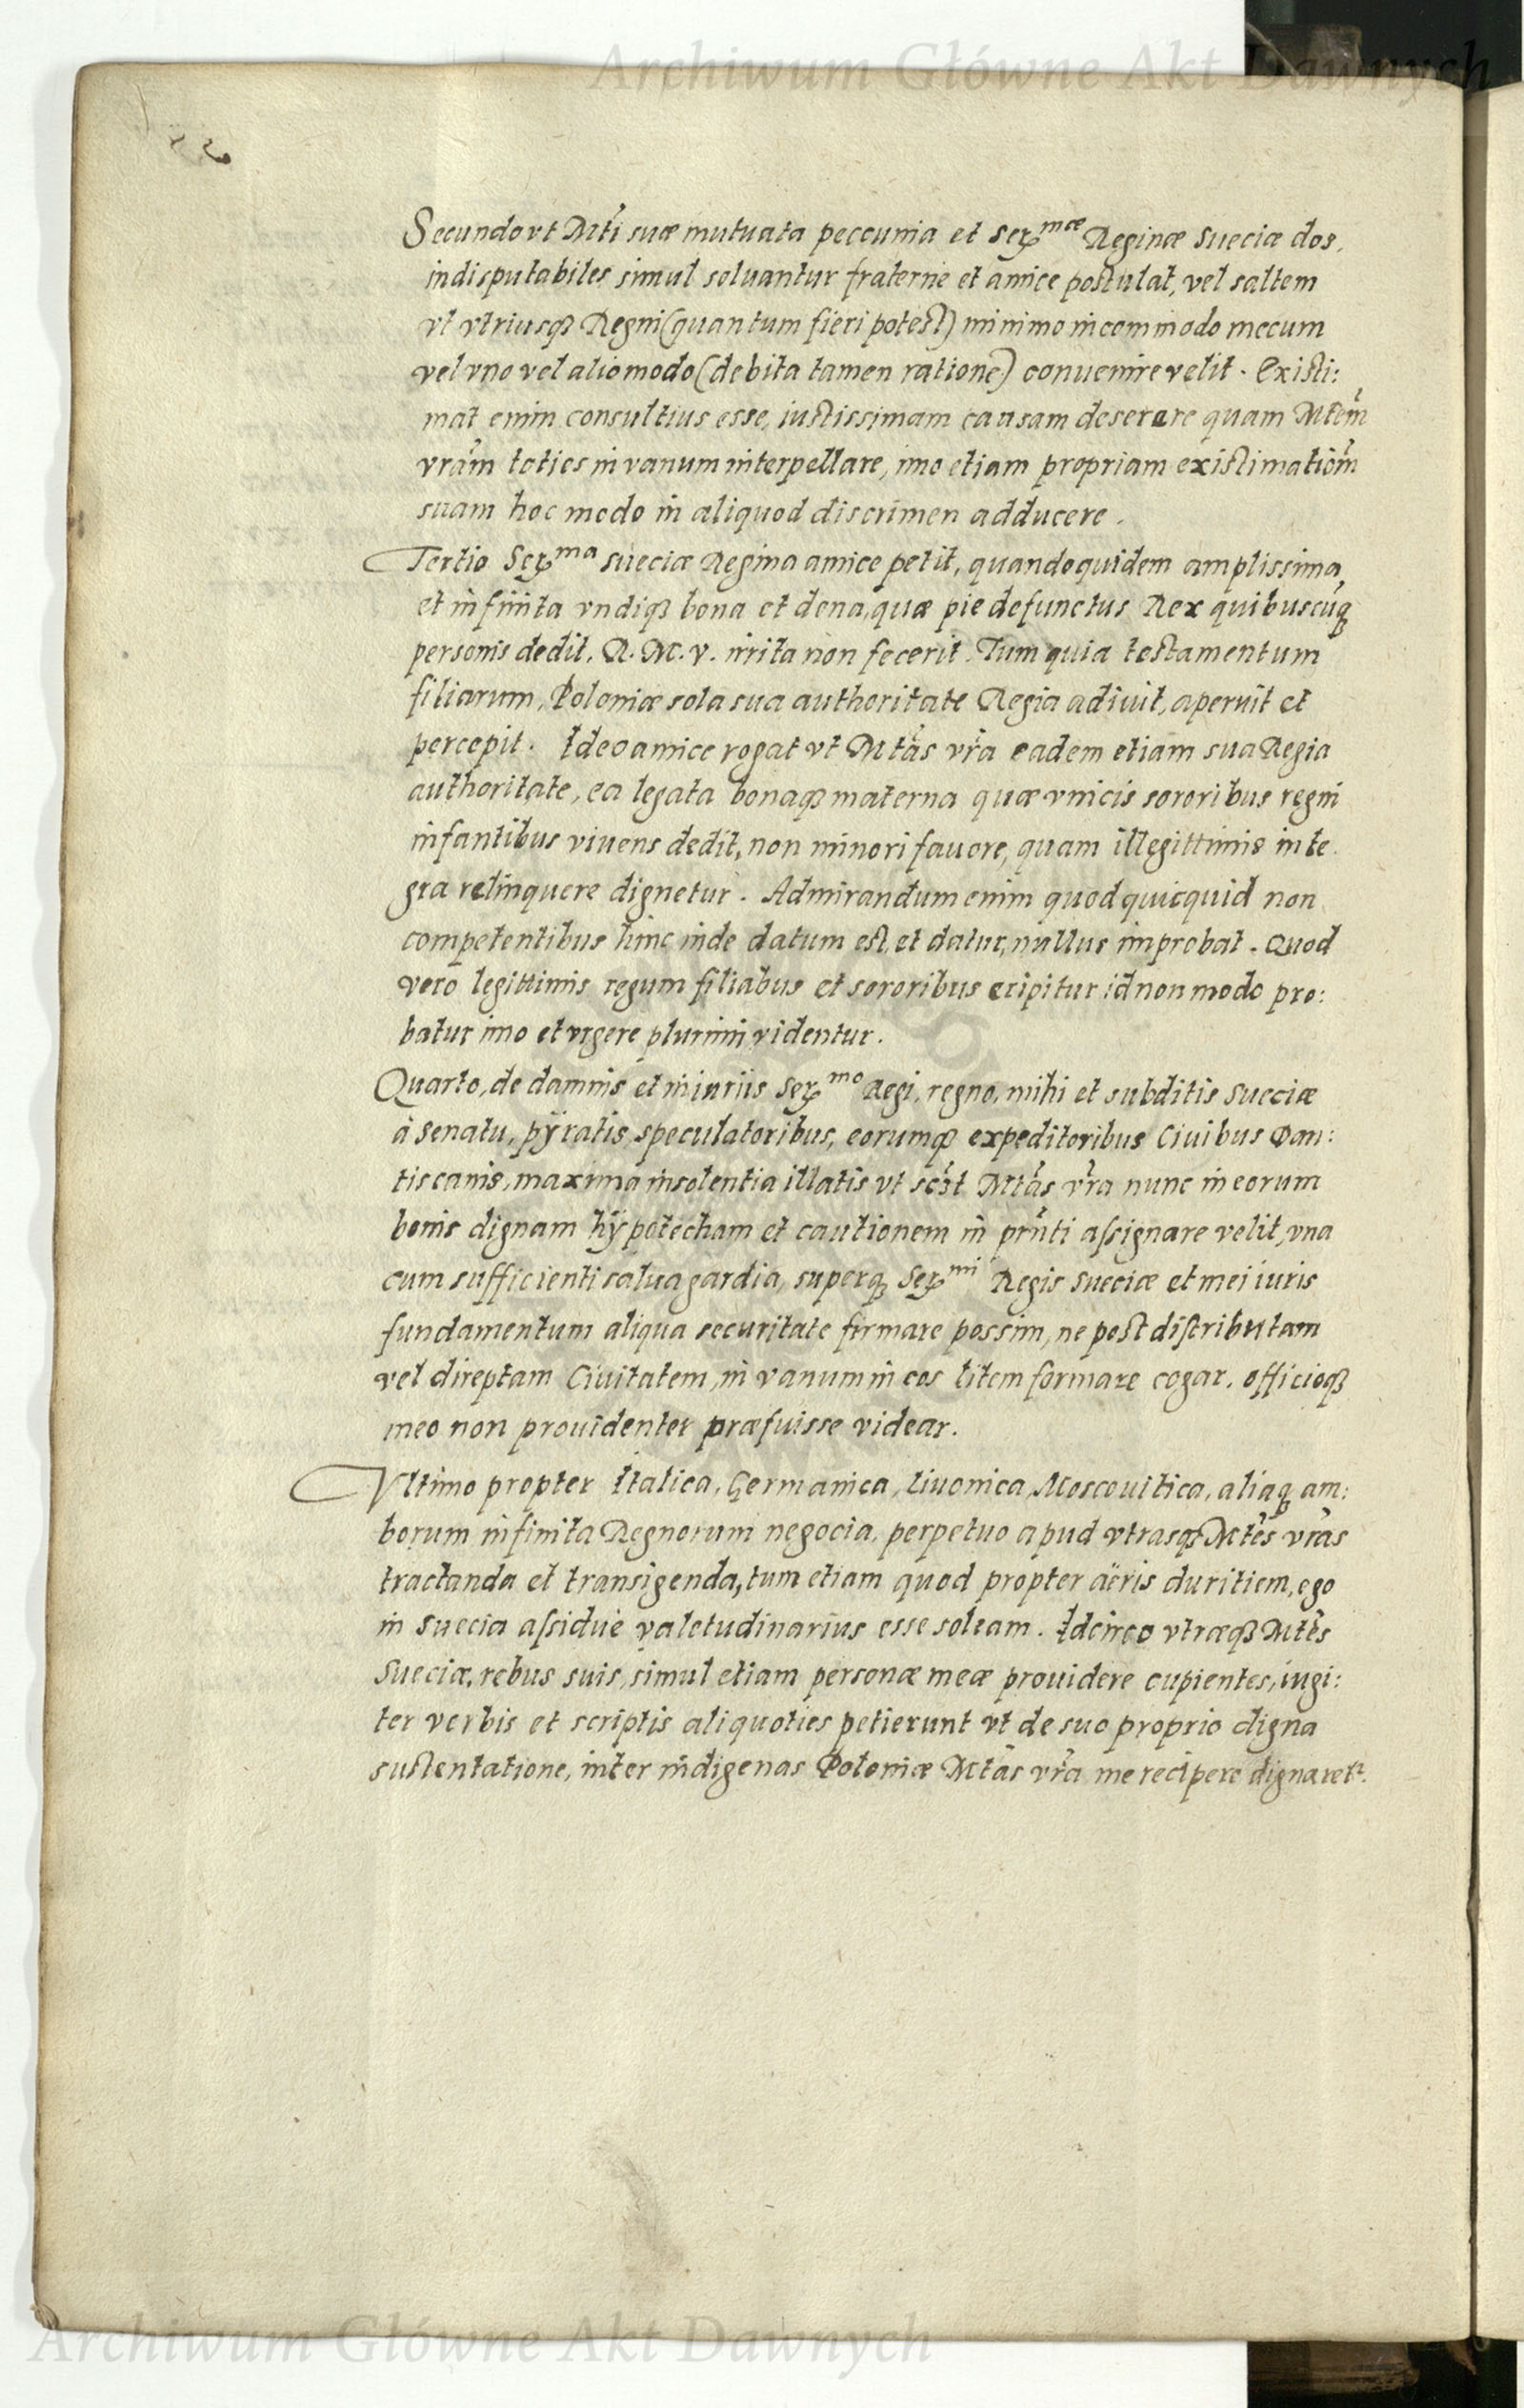 Archiwum Główne Akt Dawnych
Secundo vt Mti suæ mutuata peccunia et Ser^mæ Reginæ Sueciæ dos,
indisputabiles simul soluantur fraterne et amice postulat, vel saltem
vt vtriusq₃ Regni (quantum fieri potest) minimo incommodo mecum
vel vno vel alio modo (debita tamen ratione) conuenire velit. Existi:
mat enim consultius esse, iustissimam causam deserere quam Mtem
vram toties in vanum interpellare, imo etiam propriam existimatiom
suam hoc modo in aliquod discrimen adducere.
Tertio Ser^ma Sueciæ Regina amice petit, quandoquidem amplissima,
et infinita vndiq₃ bona et dona, quæ pie defunctus Rex quibuscuq₃
personis dedit, R. M. V. irrita non fecerit. Tum quia testamentum
filiarum, Poloniæ sola sua authoritate Regia adiuit, aperuit et
percepit. Ideo amice rogat vt Mtas vra eadem etiam sua Regia
authoritate, ea legata bonaq₃ materna quæ vnicis sororibus regni
infantibus viuens dedit, non minori fauore, quam illegittimis inte
gra relinquere dignetur. Admirandum enim quod quicquid non
competentibus hinc inde datum est, et datur, nullus improbat. Quod
vero legittimis regum filiabus et sororibus eripitur id non modo pro:
batur imo et vrgere plurimi videntur.
Quarto, de damnis et iniuriis Ser^mo Regi, regno, mihi et subditis Sueciæ
à Senatu, pÿratis, speculatoribus, eorumq₃ expeditoribus Ciuibus Dan:
tiscanis, maxima insolentia illatis vt scʒt Mtas vra nunc in eorum
bonis dignam hÿpotecham et cautionem in prnti assignare velit, vna
cum sufficienti salua gardia, superq₃ Ser^mi Regis Sueciæ et mei iuris
fundamentum aliqua securitate firmare possim, ne post distributam
vel direptam Ciuitatem, in vanum in eos litem formare cogar, officioq₃
meo non prouidenter præfuisse videar.
Vltimo propter Italica, Germanica, Liuonica, Moscouitica, aliaq₃ am:
borum infinita Regnorum negocia, perpetuo apud vtrasq₃ Mtes vras
tractanda et transigenda, tum etiam quod propter aëris duritiem, ego
in Suecia assidue valetudinarius esse soleam. Idcirco vtræq₃ Mtes
Sueciæ, rebus suis, simul etiam personæ meæ prouidere cupientes, iugi:
ter verbis et scriptis aliquoties petierunt vt de suo proprio digna
sustentatione, inter indigenas Poloniæ Mtas vra me recipere dignaret^r.
Archiwum Główne Akt Dawnych